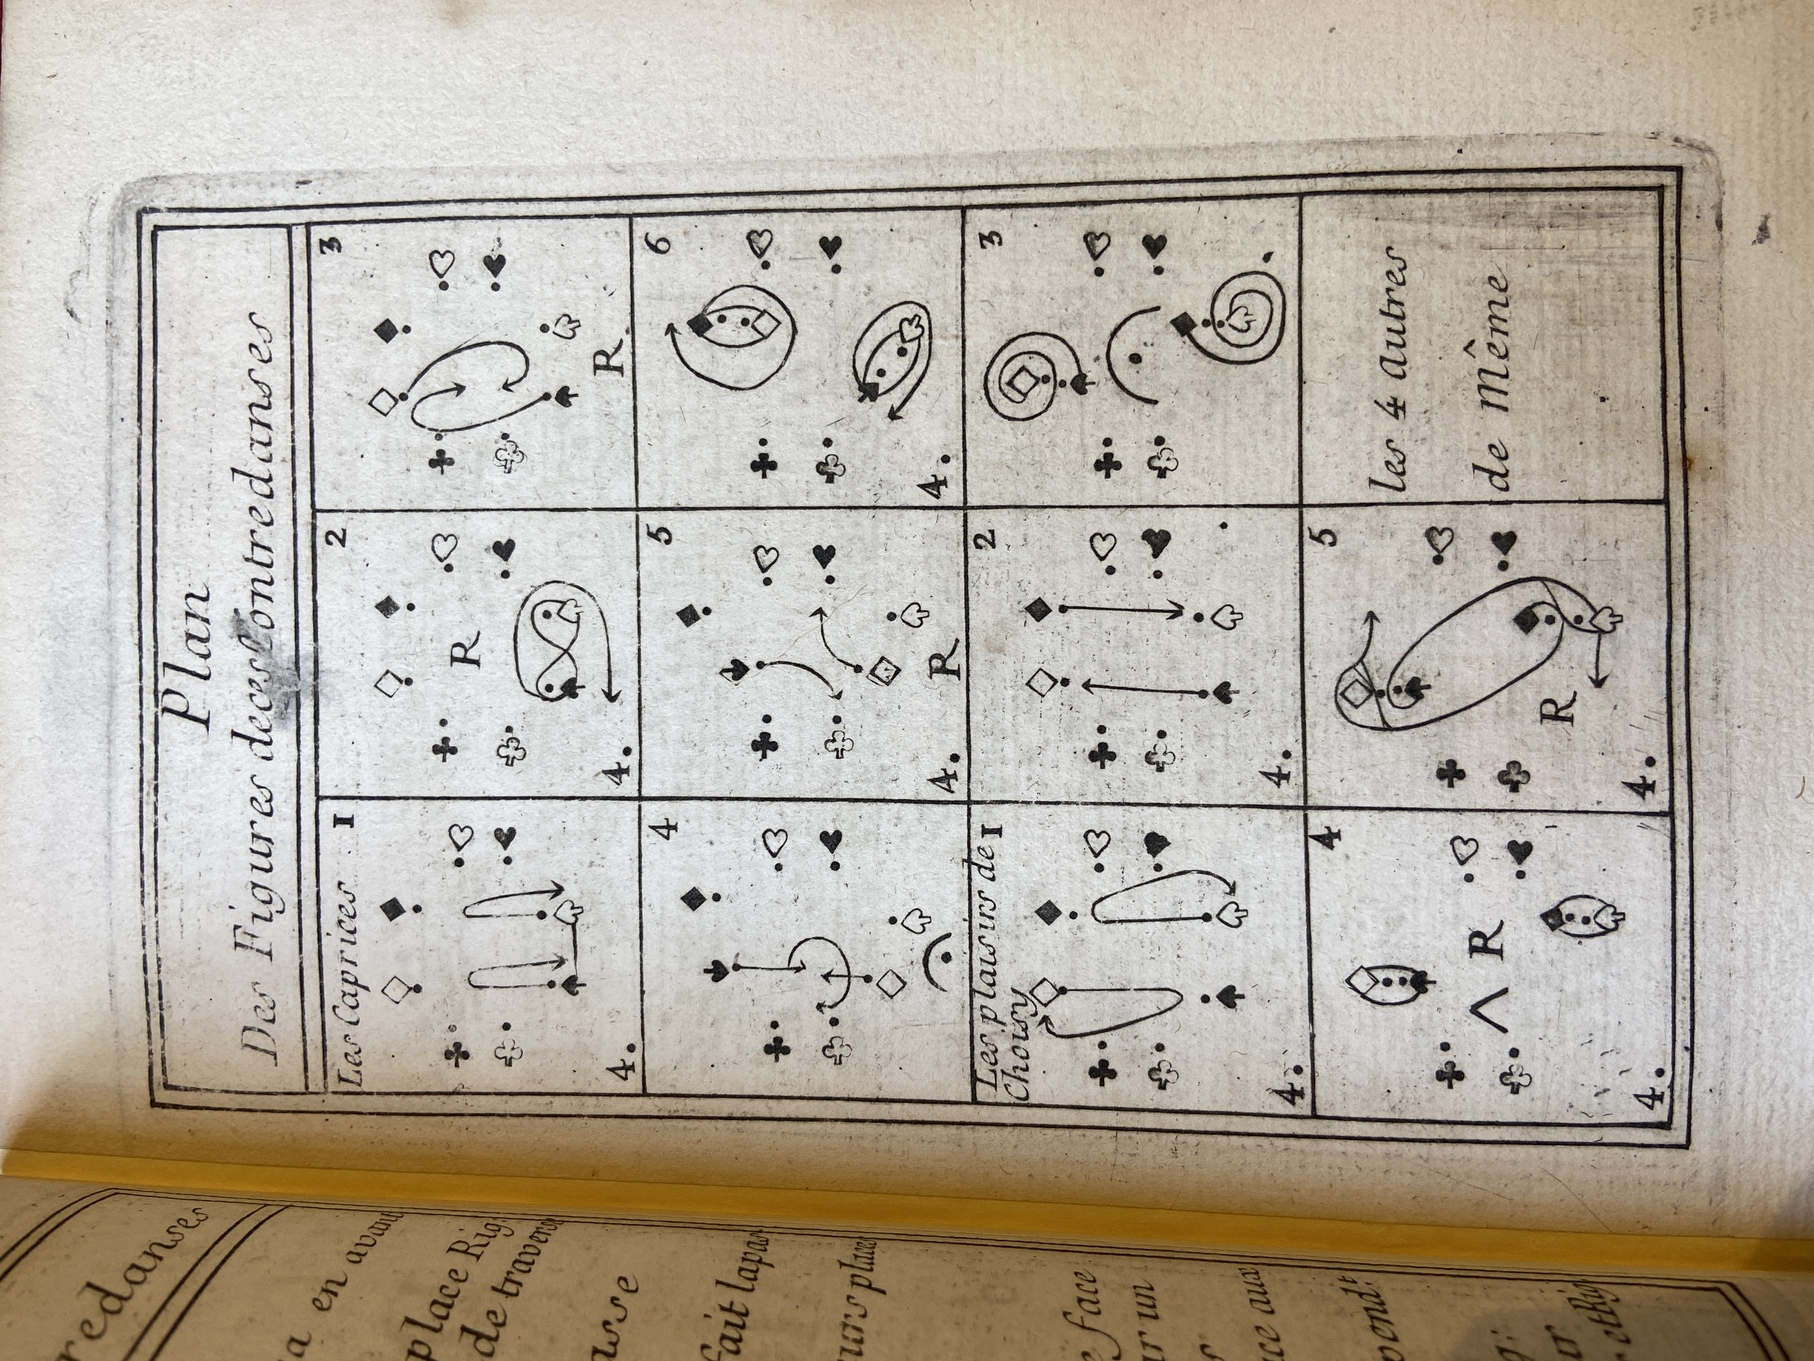 Plan
Des Figures deces Contredanses
Les Caprices 1
4.
2
R
4.
3
R
4
5
4. R
6
4.
Les plaisirs de 1
Choisy
4.
2
4.
3
4
R
4.
5
R
4.
les 4 autres
de même
redanses
a en avant
place Rig
de travers
sse
fait lapas
urs places
e face
ar un
ce aux